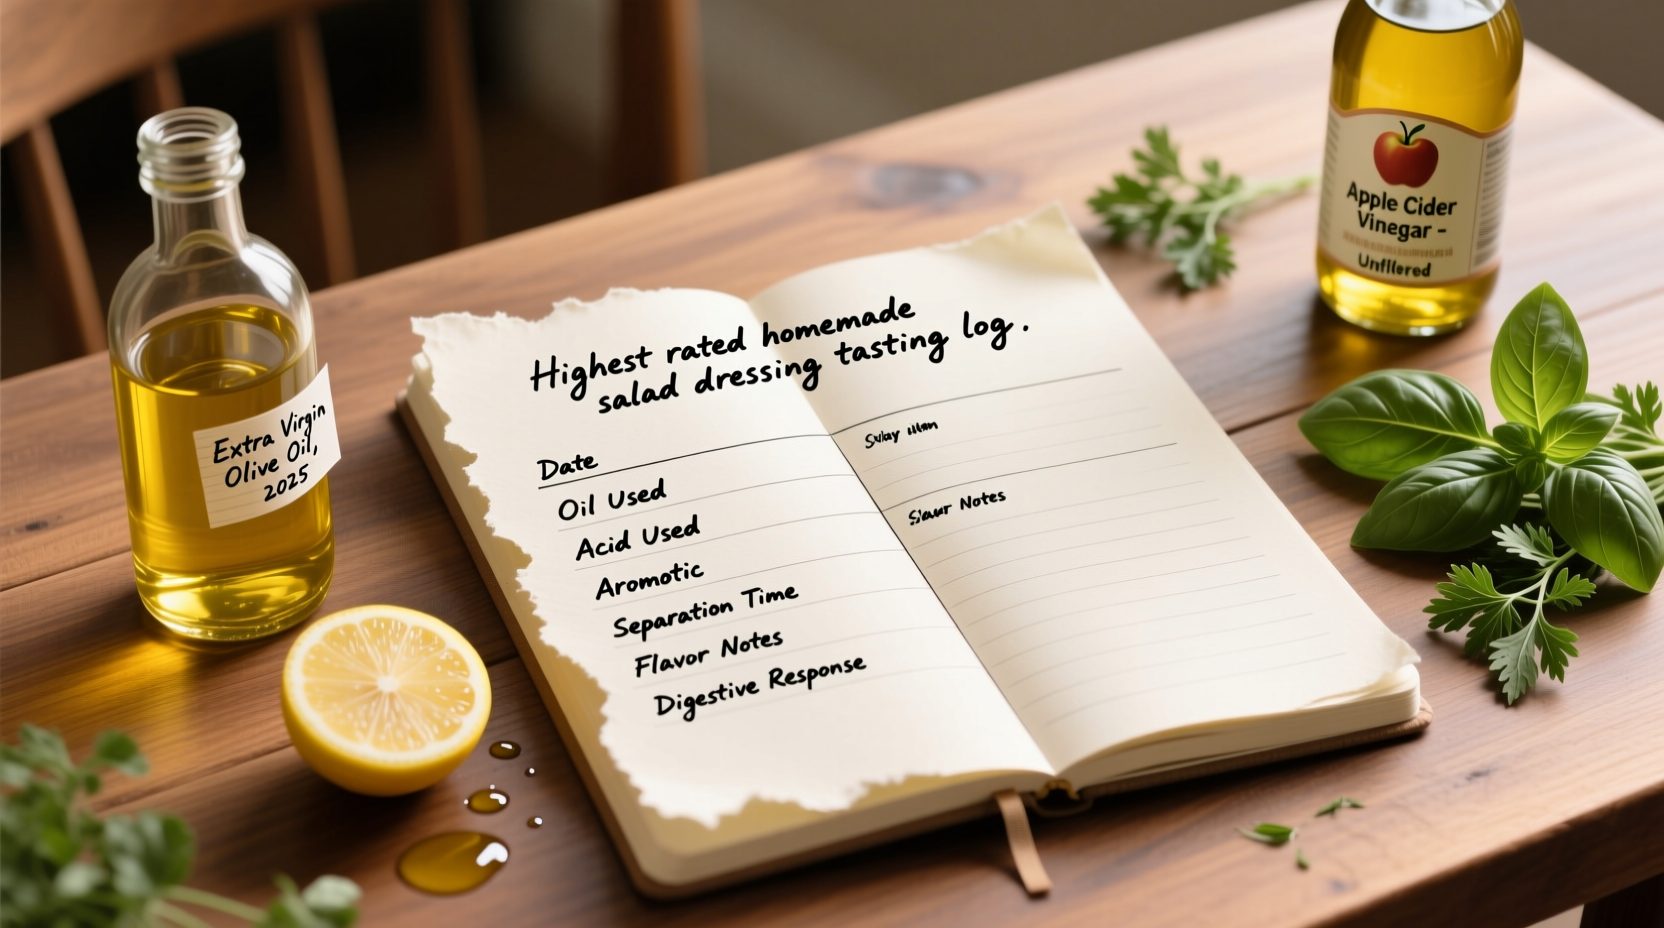 Highest rated homemade
salad dressing tasting log.
Date
Oil Used
Acid Used
Aromotic
Separation Time
Flavor Notes
Digestive Response
Notes
Extra Virgin
Olive Oil,
2025
Apple Cider
Vinegar -
Unfilered